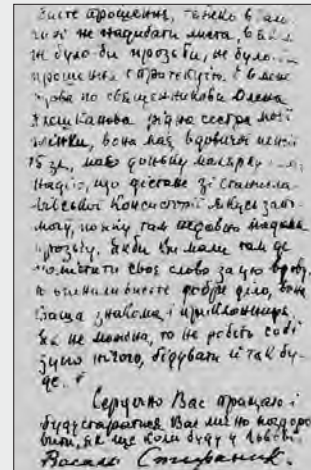 виєте прошення, тілько в
не надибати листа. в
не було би прозьби, не було
прошення і протекції. в мене
вдова по священикови Олена
Плешканова рідна сестра моєї
жінки, вона має вдовичої пенсії
15 зл, має доньку малярку
надію, що дістане зі Станисла-
вівської Консисторії якусь запо-
могу, позаяк там недавно надала
прозьбу. Якби Ви мали там де
помістити своє слово за цю вдову,
то учинили бисте добре діло, вона
Ваша знакома і приклонниця.
Як не можна, то не робіть собі
з цего нічого, бідувати и так бу-
де.
Сердечно Вас пращаю і
буду старатися Вас лично поздоро-
вити, як ще коли буду у Львові.
Василь Стефаник.